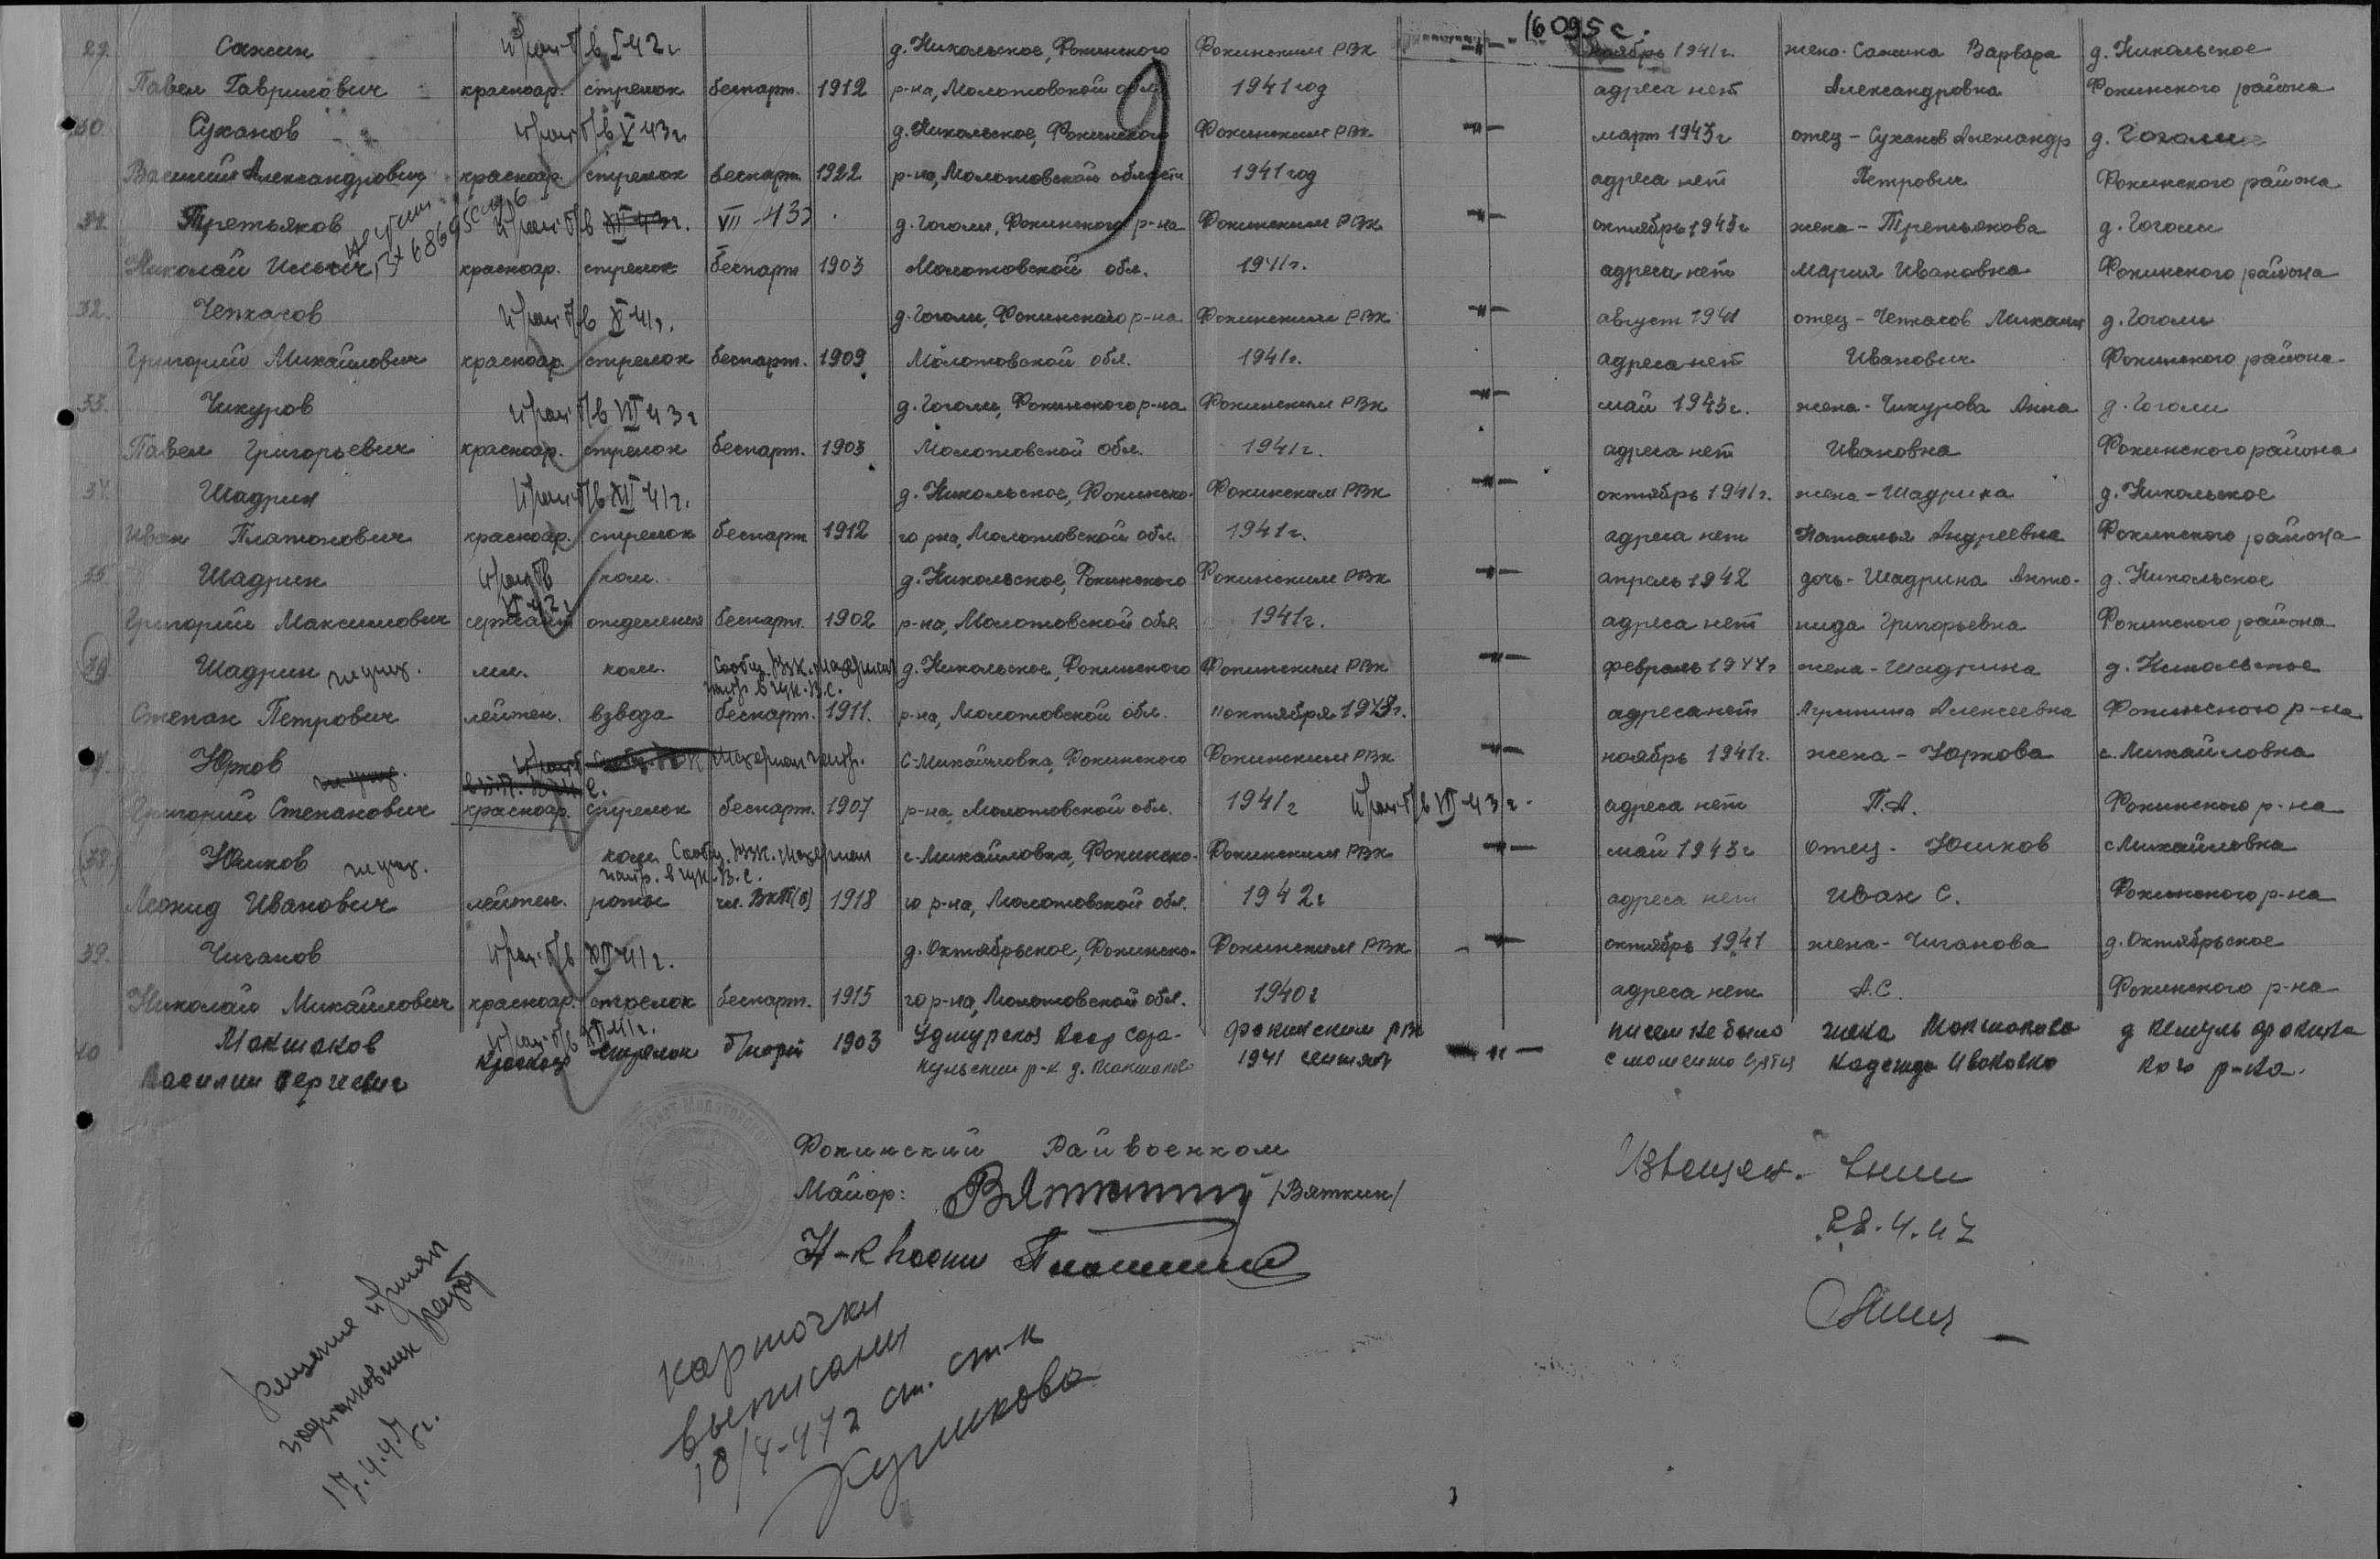 16095с.
29. Сажин проп. б/в I 42г д. Никольское, Фокинского Фокинским РВК -"- ноябрь 1941г. жена-Сажина Варвара д. Никольское
Павел Гаврилович красноар. стрелок беспарт. 1912 р-на, Молотовской обл. 1941 год адреса нет Александровна Фокинского района
30. Суханов проп. б/в V 43г д. Никольское, Фокинского Фокинским РВК -"- март 1943г отец-Суханов Александр д. Гоголи
Василий Александрович красноар. стрелок беспарт. 1922 р-на, Молотовской области 1941 год адреса нет Петрович Фокинского района
31. Третьяков проп. б/в XII 43г. VII-43г. д. Гоголи, Фокинского р-на Фокинским РВК -"- октябрь 1943г жена-Третьякова д. Гоголи
Николай Ильич красноар. стрелок беспарт 1903 Молотовской обл. 1941г. адреса нет Мария Ивановна Фокинского района
32. Чепкасов проп. б/в X 41г. д. Гоголи, Фокинского р-на Фокинским РВК -"- август 1941 отец-Чепкасов Михаил д. Гоголи
Григорий Михайлович красноар. стрелок беспарт. 1909 Молотовской обл. 1941г. адреса нет Иванович Фокинского района
33. Чикуров проп. б/в VII 43г д. Гоголи, Фокинского р-на Фокинским РВК -"- май 1943г. жена-Чикурова Анна д. Гоголи
Павел Григорьевич красноар. стрелок беспарт. 1903 Молотовской обл. 1941г. адреса нет Ивановна Фокинского района
34. Шадрин проп. б/в XII 41г. д. Никольское, Фокинско- Фокинским РВК -"- октябрь 1941г. жена-Шадрина д. Никольское
Иван Платонович красноар. стрелок беспарт 1912 го р-на, Молотовской обл 1941г. адреса нет Наталья Андреевна Фокинского района
35 Шадрин проп. б/в ком. д. Никольское, Фокинского Фокинским РВК -"- апрель 1942 дочь-Шадрина Анто- д. Никольское
VI 42г
Григорий Максимович сержант отделения беспарт. 1902 р-на, Молотовской обл 1941г. адреса нет нида Григорьевна Фокинского района
36 Шадрин не учит. мл. ком. Сообщ. РВК. материал д. Никольское, Фокинского Фокинским РВК -"- февраль 1944г жена-Шадрина д. Никольское
напр. в ГУК. В.С.
Степан Петрович лейтен. взвода беспарт. 1911. р-на, Молотовской обл. 11 октября 1943г. адреса нет Агрипина Алексеевна Фокинского р-на
37. Юрков не учит. материал напр. с. Михайловка, Фокинского Фокинским РВК -"- ноябрь 1941г. жена-Юркова с. Михайловка
Григорий Степанович красноар. стрелок беспарт. 1907 р-на, Молотовской обл. 1941г проп. б/в VII-43г. адреса нет П.А. Фокинского р-на
38 Юшков не учит. ком. Сообщ. РВК. материал с. Михайловка, Фокинско- Фокинским РВК -"- май 1943г отец- Юшков с Михайловка
напр. в ГУК. В.С.
Леонид Иванович лейтен. роты чл. ВКП(б) 1918 го р-на, Молотовской обл. 1942г адреса нет Иван С. Фокинского р-на
39. Чиганов проп. б/в XII 41г. д. Октябрьское, Фокинско- Фокинским РВК -"- октябрь 1941 жена-Чиганова д. Октябрьское
Николай Михайлович красноар. стрелок беспарт. 1915 го р-на, Молотовской обл. 1940г адреса нет А.С. Фокинского р-на
40 Макшаков проп. б/в XII 41г. стрелок б/парт 1903 Удмурская Асср Сара- Фокинским рвк -"- писем не было жена Макшакова д Фокинс
Василий Сергиевич красноар кульский р-н д. Макшаково 1941 с момента взятия Надежда Ивановна кого р-на.
Фокинский Райвоенком
Майор: Вяткин /Вяткин/
Н-к части
Извещен.
28.4.47
решение принял
17.4.47г.
карточки
выписаны
18/4-47г ст. ст-к